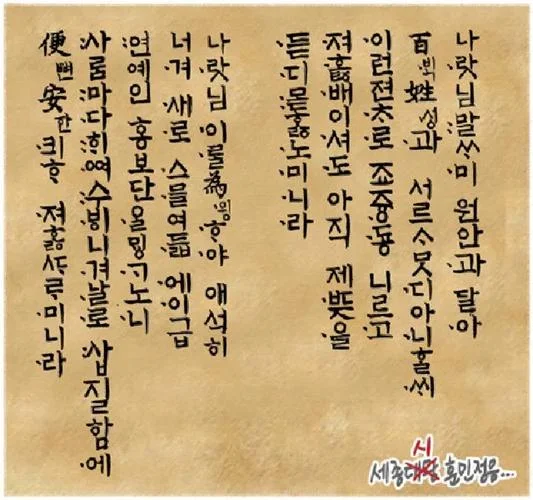 나랏님말ᄊᆞ미 원안과 달아
百빅姓셩과 서르ᄉᆞᄆᆞᆺ디아니홀씨
이런젼ᄎᆞ로 죠중동 니르고
져ᄒᆞᇙ배이셔도 아직 제ᄠᅳᆮ을
듣디몯ᄒᆞᇙ노미니라
나랏님 이ᄅᆞᆯ爲윙ᄒᆞ야 애석히
너겨 새로 스믈여듧 에이급
연예인 홍보단ᄋᆞᆯᄆᆡᇰᄀᆞ노니
사ᄅᆞᆷ마다ᄒᆡᅇᅧ수ᄫᅵ니겨날로 삽질함에
便뼌安한킈ᄒᆞ 져ᄒᆞᇙᄯᆞᄅᆞ미니라
시
세종대왕 훈민정음...